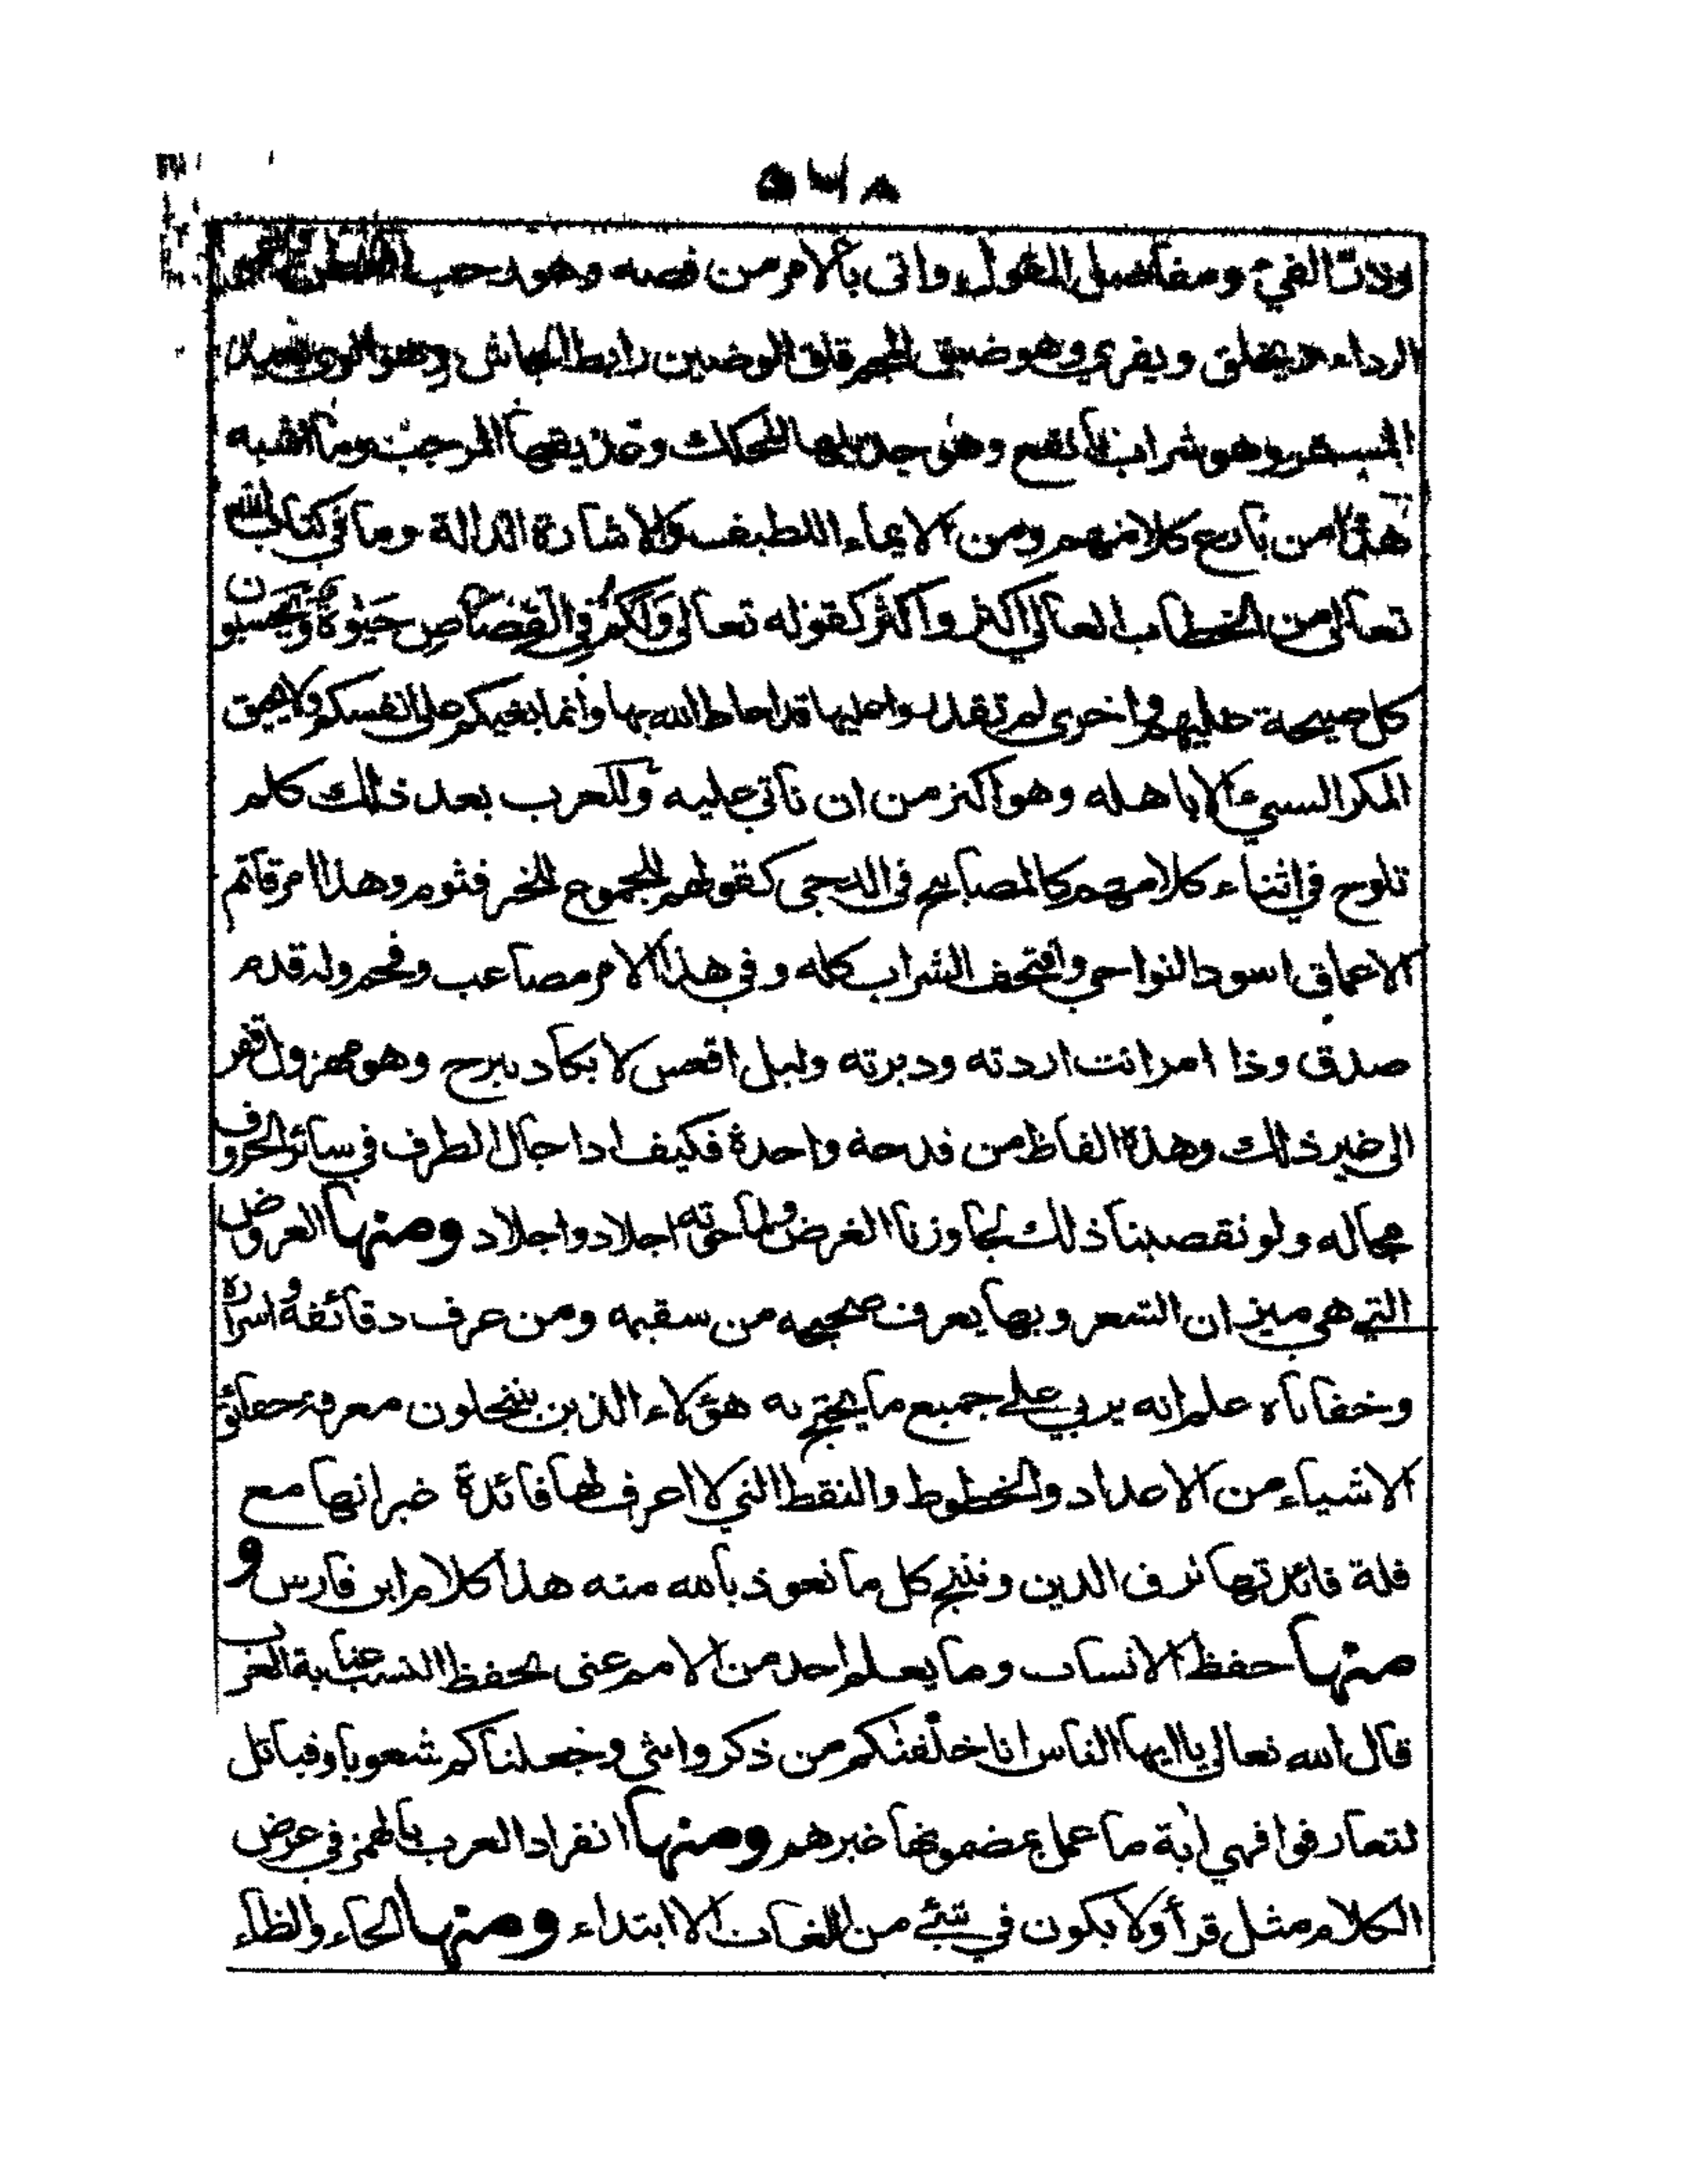 ٥٦٨
وذرت الفيء ومفاصل القول واتى بالامر من فصه وهو رحب
الرداء يخلق ويفري وهو ضيق المجم قلق الوضين رابط الجاش وهو الوى بعيد
المستمر وهو شراب بانقع وهو جذيلها المحكك وعذيقها المرجب وما اشبه
هذا من بارع كلامهم ومن الايماء اللطيف والاشارة الدالة وما في كتاب الله
تعالى من الخطاب العالي اكثر واكثر كقوله تعالى وَلَكُمْ فِي الْقِصَاصِ حَيٰوةٌ ويحسبون
كل صيحة عليهم واخرى لم تقدروا عليها قد احاط الله بها وانما بغيكم على انفسكم ولا يحيق
المكر السيئ الا باهله وهو اكثر من ان ناتي عليه وللعرب بعد ذلك كلم
تلوح في اثناء كلامهم كالمصابيح في الدجى كقولهم للجموع للخير قثوم وهذا امر قاتم
الاعماق اسود النواحي واقتحف الشراب كله وفي هذا الامر مصاعب وقحم وله قدم
صدق وذا امر انت اردته ودبرته وليل اقعس لا يكاد يبرح وهو معزول قفر
الى غير ذلك وهذه الفاظ من قدحة واحدة فكيف اذا جال الطرف في سائر الحروف
مجاله ولو تقصينا ذلك لجاوزنا الغرض ولما حوته اجلاد واجلاد ومنها العروض
التي هي ميزان الشعر وبها يعرف صحيحه من سقيمه ومن عرف دقائقه واسراره
وخفاياه علم انه يربي على جميع ما يحتج به هؤلاء الذين ينتحلون معرفة حقائق
الاشياء من الاعداد والخطوط والنقط التي لا اعرف لها فائدة غير انها مع
قلة فائدتها ترف الدين وتنتج كل ما نعوذ بالله منه هذا كلام ابن فارس و
منها حفظ الانساب وما يعلم احد من الامم عنى بحفظ النسب عناية العرب
قال الله تعالى يا ايها الناس انا خلقنكم من ذكر وانثى وجعلناكم شعوبا وقبائل
لتعارفوا فهي اية ما عمل بمضمونها غيرهم ومنها انفراد العرب بالهمز في عرض
الكلام مثل قرأ ولا يكون في شيء من اللغات الا ابتداء ومنها الحاء والظاء